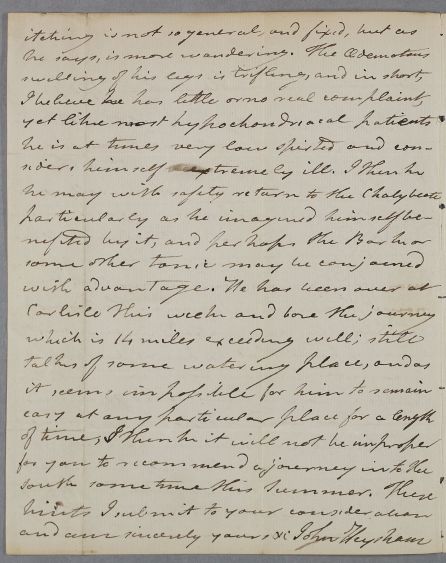 itching is not so general, and fixed, but as
he says, is more wandering. The Œdematous
swelling of his legs is trifling, and in short,
I believe he has little or no real complaint,
yet like most hypochondriacal patients
he is at times very low spirited and con-
siders himself extremely ill. I think
he may with safety return to the Chalybeate
particularly as he imagined himself be-
nefited by it, and perhaps the Bark or
some other tonic may be conjoined
with advantage. He has been over at
Carlisle this week and bore the journey
which is 14 miles exceeding well; still
talks of some watering place, and as
it seems impossible for him to remain
easy at any particular place for a length
of time, I think it will not be improper
for you to recommend a journey into the
south some time this Summer. These
hints I submit to your consideration
and am sincerely yours &c John Heysham